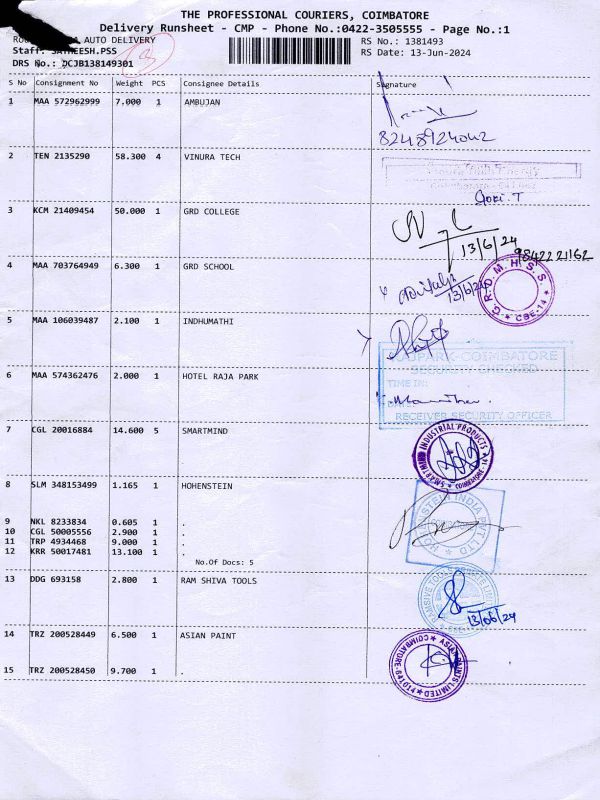 THE PROFESSIONAL COURIERS, COIMBATORE
Delivery Runsheet - CMP - Phone No.:0422-3505555 - Page No.:1
AUTO DELIVERY
RS No.: 1381493
Staff: SATHEESH.PSS
RS Date: 13-Jun-2024
DRS No.: DCJB138149301
S No Consignment No Weight PCS Consignee Details Signature
1 MAA 572962999 7.000 1 AMBUJAN
8248924042
2 TEN 2135290 58.300 4 VINURA TECH
Gori.T
3 KCM 21409454 50.000 1 GRD COLLEGE
13/6/24
9842221162
4 MAA 703764949 6.300 1 GRD SCHOOL
13/6/24
G.R.D.M.H.S.S. CBE-14
5 MAA 106039487 2.100 1 INDHUMATHI
PARK-COIMBATORE
SECURITY CHECKED
TIME IN:
6 MAA 574362476 2.000 1 HOTEL RAJA PARK
RECEIVER SECURITY OFFICER
7 CGL 20016884 14.600 5 SMARTMIND
SMARTMIND INDUSTRIAL PRODUCTS
8 SLM 348153499 1.165 1 HOHENSTEIN
HOHENSTEIN INDIA PVT. LTD
9 NKL 8233834 0.605 1 .
10 CGL 50005556 2.900 1 .
11 TRP 4934468 9.000 1 .
12 KRR 50017481 13.100 1 .
No.Of Docs: 5
13 DDG 693158 2.800 1 RAM SHIVA TOOLS
13/06/24
14 TRZ 200528449 6.500 1 ASIAN PAINT
ASIAN PAINTS LIMITED COIMBATORE-641014
15 TRZ 200528450 9.700 1 .